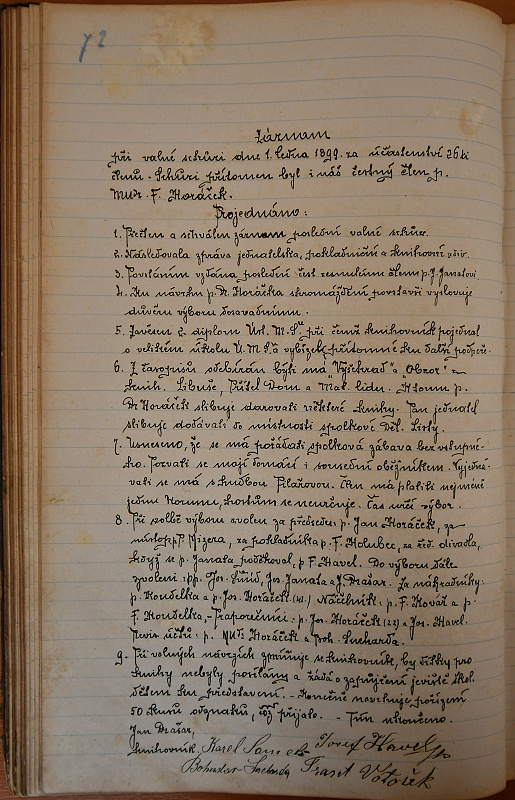 72
Záznam
při valné schůzi dne 1. ledna 1899. za účastenství 26ti
členů. Schůzi přítomen byl i náš čestný člen p.
MUDr. F. Horáček.
Projednáno:
1. Přečten a schválen záznam poslední valné schůze.
2. Následovala zpráva jednatelská, pokladniční a knihovní
3. Povstáním vzdána poslední čest zesnulému členu p. J. Janatovi.
4. Ku návrhu p. Dr. Horáčka shromáždění povstavši vyslovuje
důvěru výboru dosavadnímu.
5. Zavěšen diplom Úst. M. Š. při čemž knihovník pojednal
o velikém úkolu Ú. M. Š. a vybízel přítomné ku další podpoře.
6. Z časopisů odebírán býti má "Vyšehrad" a "Obzor" z
knih. Libuše, Přítel Dom. a Mat. lidu. K tomu p.
Dr. Horáček slibuje darovati některé knihy. Pan jednatel
slibuje dodávati do místnosti spolkové Děl. Listy.
7. Usneseno, že se má pořádati spolková zábava bez vstupné-
ho. Pozvati se mají domácí i sousední oběžníkem. Vyjedná-
vati se má s hudbou Pilařovou. Člen má platiti nejméně
jednu korunu, hostům se neurčuje. Čas určí výbor.
8. Při volbě výboru zvolen za předsedu p. Jan Horáček, za
místop. p. Mizera, za pokladníka p. F. Holubec, za řed. divadla,
když se p. Janata poděkoval, p. F. Havel. Do výboru dále
zvoleni: pp. Jos. Jos. Janata a J. Drašar. Za náhradníky:
p. Koudelka a p. Jos. Horáček Náčelníkem: p. F. Kovář a p.
F. Koudelka, - Praporečníci: p. Jos. Horáček (22) a Jos. Havel.
Revis. účtů: p. MUDr. Horáček a Boh. Sucharda.
9. Při volných návrzích zmiňuje se knihovník, by lístky pro
knihy nebyly posílány a žádá o zapůjčení jeviště škol.
dětem ku představení. - Konečně navrhuje pořízení
50 kusů odznaků, což přijato. - Tím ukončeno.
Jan Drašar,
knihovník. Karel Josef Havel
Bohuslav Sucharda Frant Votoček